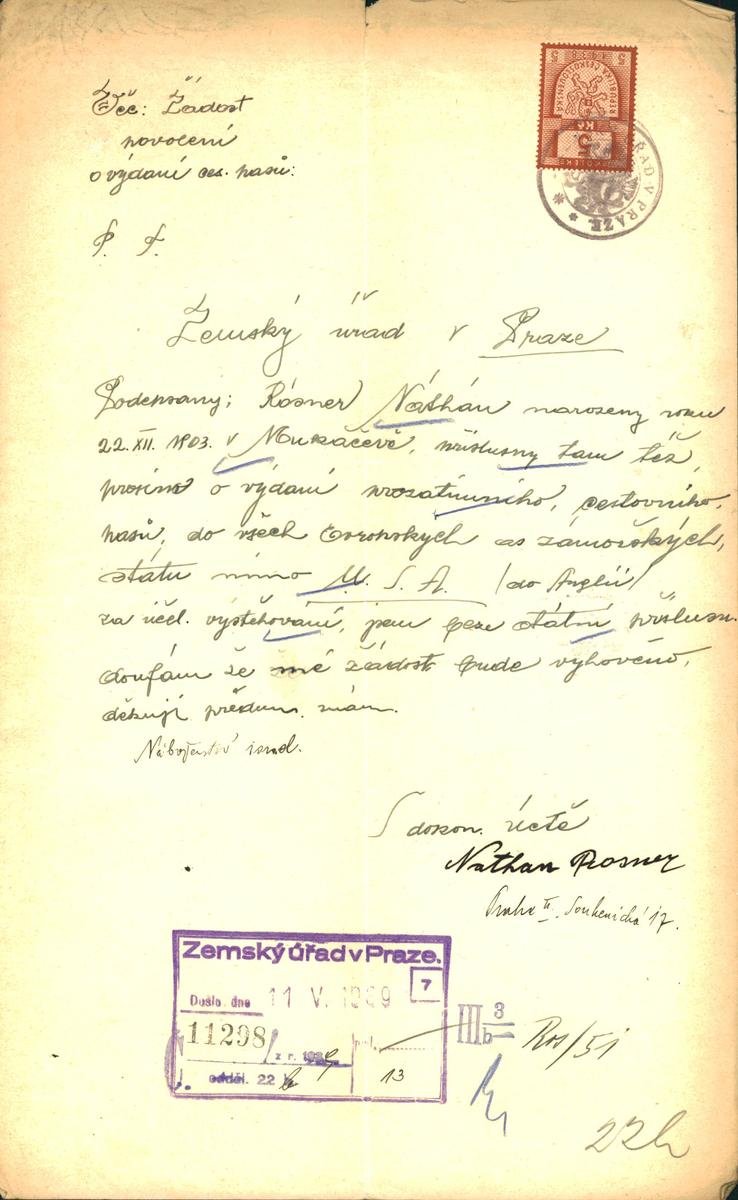 Věc: Žádost
povolení
o výdání ces. pasů:
P. T.
Zemský úřad v Praze
Podepsany; Rósner Náthán narozeny roku
22. XII. 1903. v Mukačevě, příslusny tam též,
prosím o výdaní prozatimního, cestovního,
pasů, do všech Evropských as zámořských,
státu mimo U. S. A. /do Anglií/
za účel. výstěhování, jsem beze státní přislusn.
doufám že mé žádost bude vyhověno,
děkuji předem mám.
Náboženství israel.
S dokon. úctě
Nathan Rosner
Praha II. Soukenická 17.
REPUBLIKA ČESKOSLOVENSKÁ
5 Kč 5
ÚŘAD V PRAZE
Zemský úřad v Praze.
7
Došlo dne 11 V. 1939
11298 / z r. 1939
odděl. 22 b
13
III b 3
Ros/51
22b